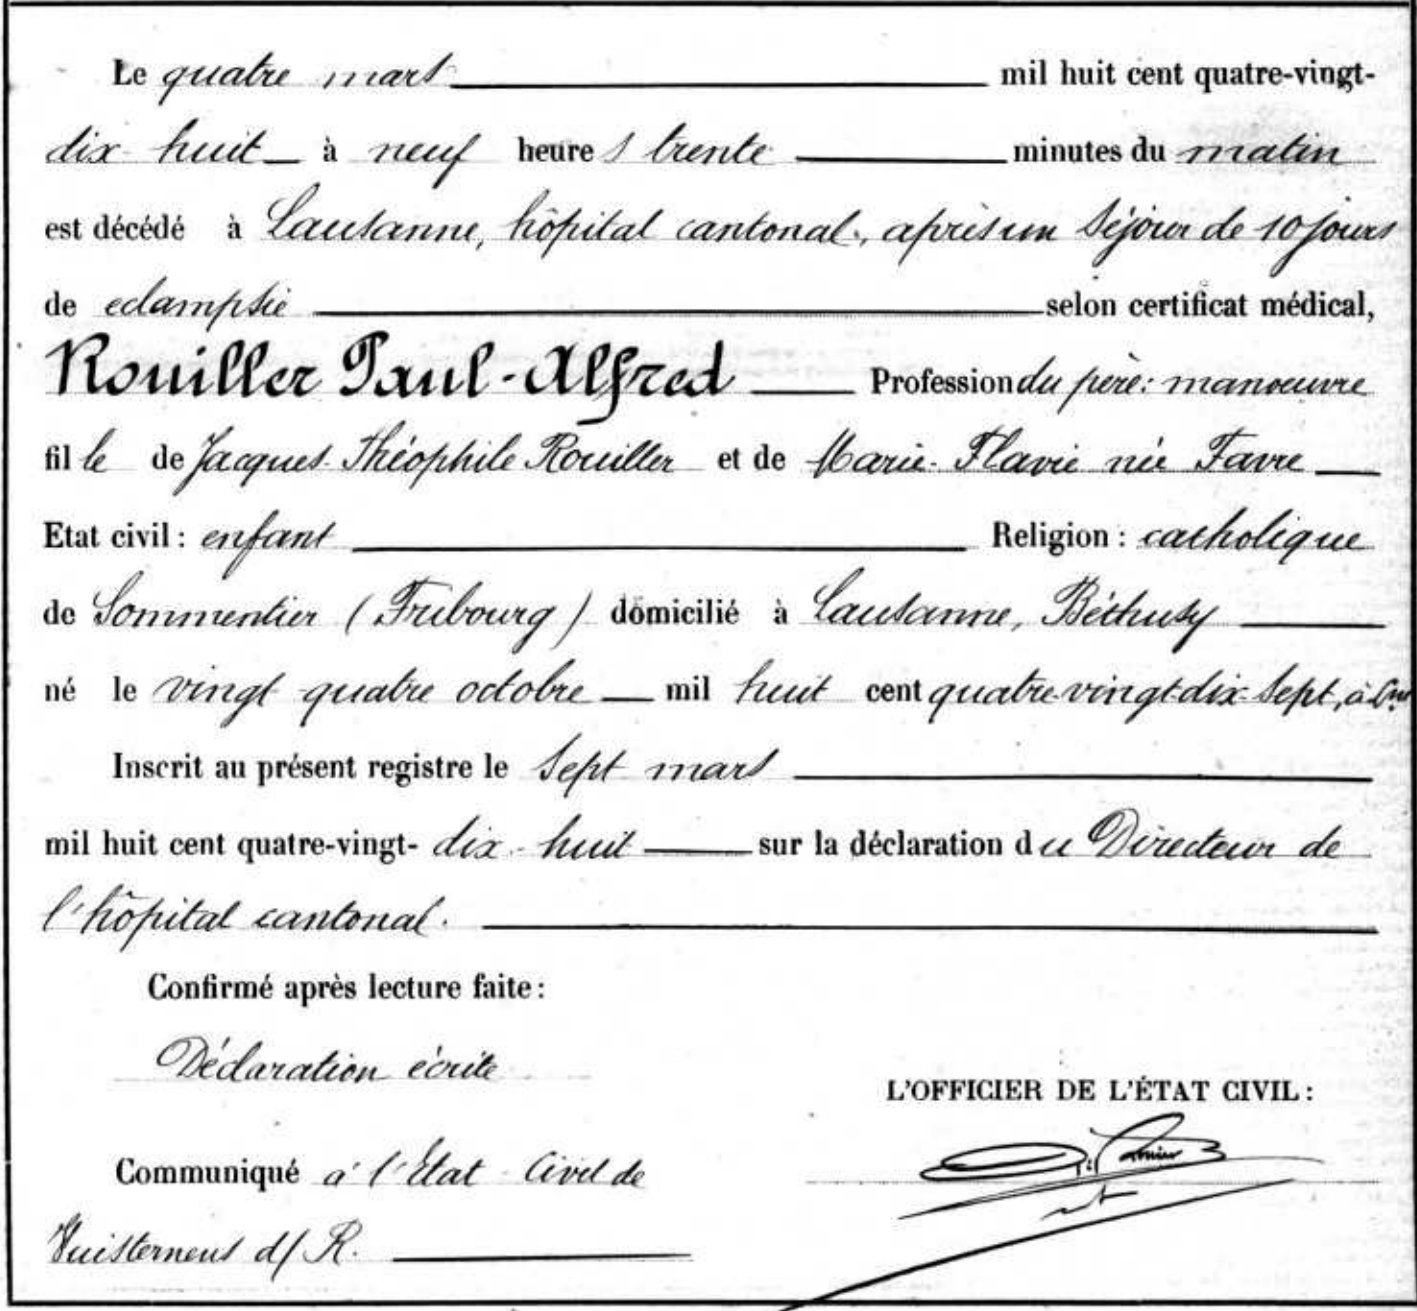 Le quatre mars mil huit cent quatre-vingt-
dix-huit à neuf heures trente minutes du matin
est décédé à Lausanne, hôpital cantonal, après un séjour de 10 jours
de eclampsie selon certificat médical,
Rouiller Paul-Alfred Profession du père: manoeuvre
fil le de Jacques-Théophile Rouiller et de Marie-Flavie née Favre
Etat civil: enfant Religion: catholique
de Sommentier (Fribourg) domicilié à Lausanne, Béthusy
né le vingt-quatre octobre mil huit cent quatre-vingt-dix-sept, à Lne
Inscrit au présent registre le sept mars
mil huit cent quatre-vingt- dix-huit sur la déclaration du Directeur de
l'hôpital cantonal.
Confirmé après lecture faite:
Déclaration écrite
L'OFFICIER DE L'ÉTAT CIVIL:
Communiqué à l'Etat-Civil de
Vuisternens d/ R.